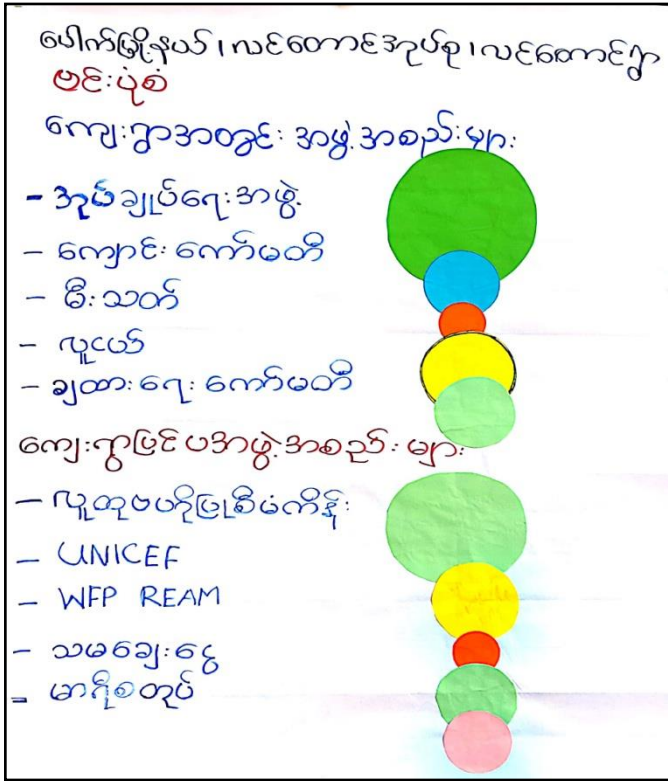 ပေါက်မြို့နယ်၊ လင်တောင်အုပ်စု၊ လင်တောင်ရွာ
ဗင်းပုံစံ
ကျေးရွာအတွင်း အဖွဲ့အစည်းများ
- အုပ်ချုပ်ရေးအဖွဲ့
- ကျောင်းကော်မတီ
- မီးသတ်
- လူငယ်
- ချထားရေးကော်မတီ
ကျေးရွာပြင်ပအဖွဲ့အစည်းများ
- လူထုဗဟိုပြုစီမံကိန်း
- UNICEF
- WFP REAM
- သမချေးငွေ